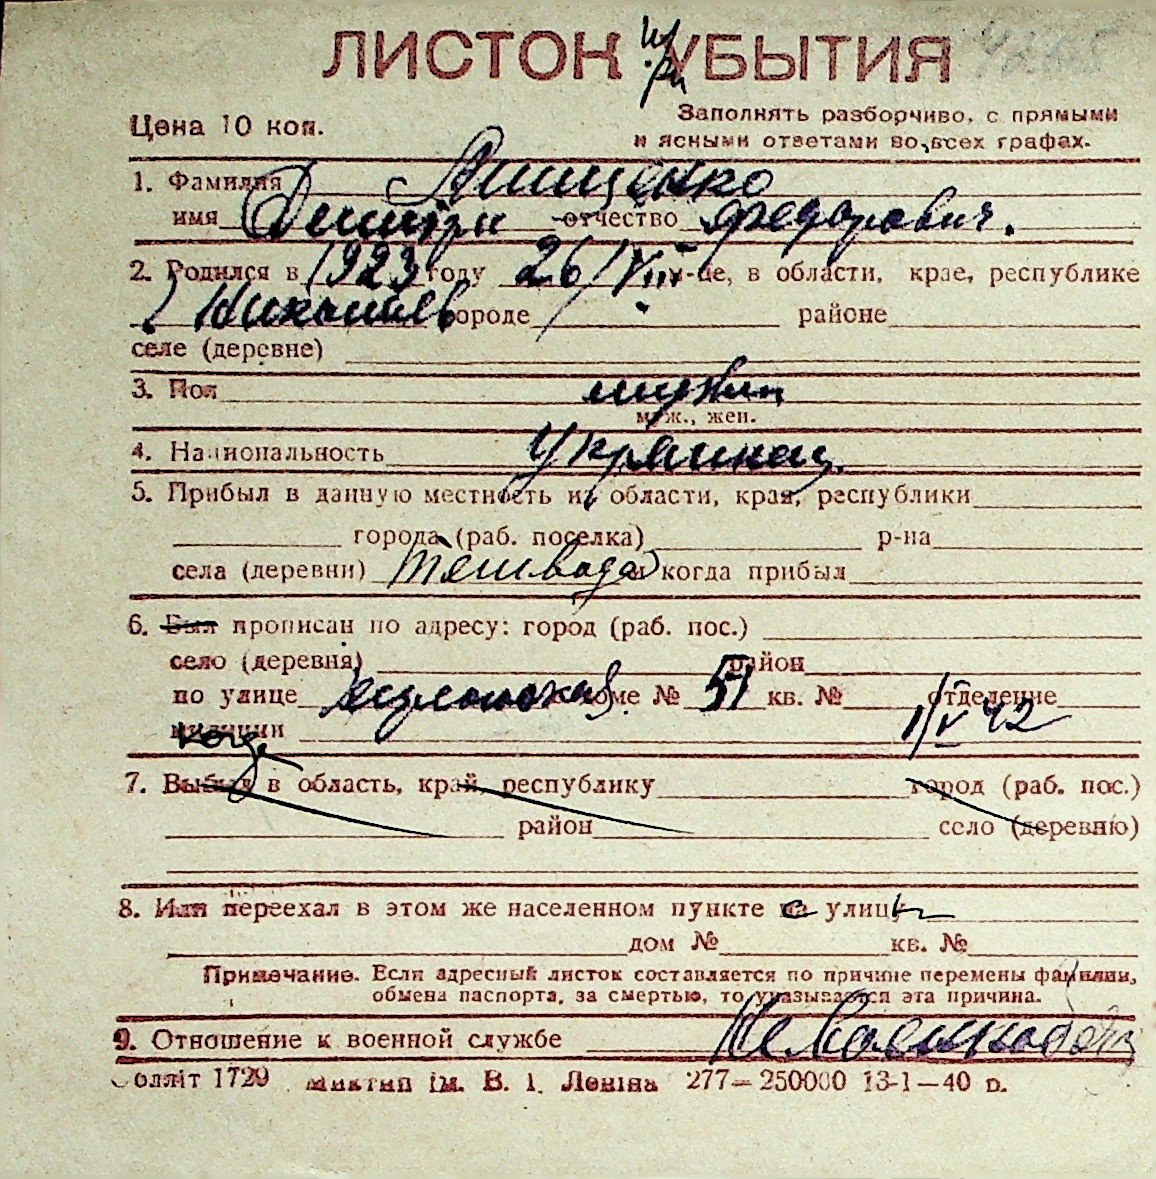 ЛИСТОК УБЫТИЯ
При
Цена 10 коп.
Заполнять разборчиво, с прямыми
и ясными ответами во всех графах.
1. Фамилия
имя Дмитри отчество Федорович.
2. Родился в 1923 году 26/VIII м-це, в области, крае, республике
г. Николаев городе районе
селе (деревне)
3. Пол мужчин
муж., жен.
4. Национальность Украинец
5. Прибыл в данную местность из области, края, республики
города (раб. поселка) р-на
села (деревни) и когда прибыл
6. Был прописан по адресу: город (раб. пос.)
село (деревня) район
по улице доме № 51 кв. № отделение
милиции 1/V 42
7. Выбыл в область, край, республику город (раб. пос.)
район село (деревню)
8. Или переехал в этом же населенном пункте с улицы
дом № кв. №
Примечание. Если адресный листок составляется по причине перемены фамилии,
обмена паспорта, за смертью, то указывается эта причина.
9. Отношение к военной службе Не военнообяз
Обллiт 1729 Миктип iм. В. I. Ленiна 277—250000 13-1—40 р.